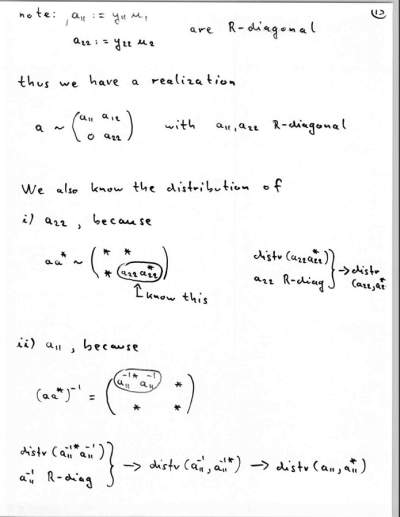 13
note: a₁₁ := y₁₁ u₁
a₂₂ := y₂₂ u₂ are R-diagonal
thus we have a realization
a ~ ( a₁₁ a₁₂
0 a₂₂ ) with a₁₁, a₂₂ R-diagonal
We also know the distribution of
i) a₂₂, because
aa* ~ ( * *
* a₂₂a₂₂* )
↑ know this
distr(a₂₂a₂₂*)
a₂₂ R-diag } → distr
(a₂₂, a₂₂*
ii) a₁₁, because
(aa*)⁻¹ = ( a₁₁⁻¹* a₁₁⁻¹ *
* * )
distr(a₁₁⁻¹* a₁₁⁻¹)
a₁₁⁻¹ R-diag } → distr(a₁₁⁻¹, a₁₁⁻¹*) → distr(a₁₁, a₁₁*)